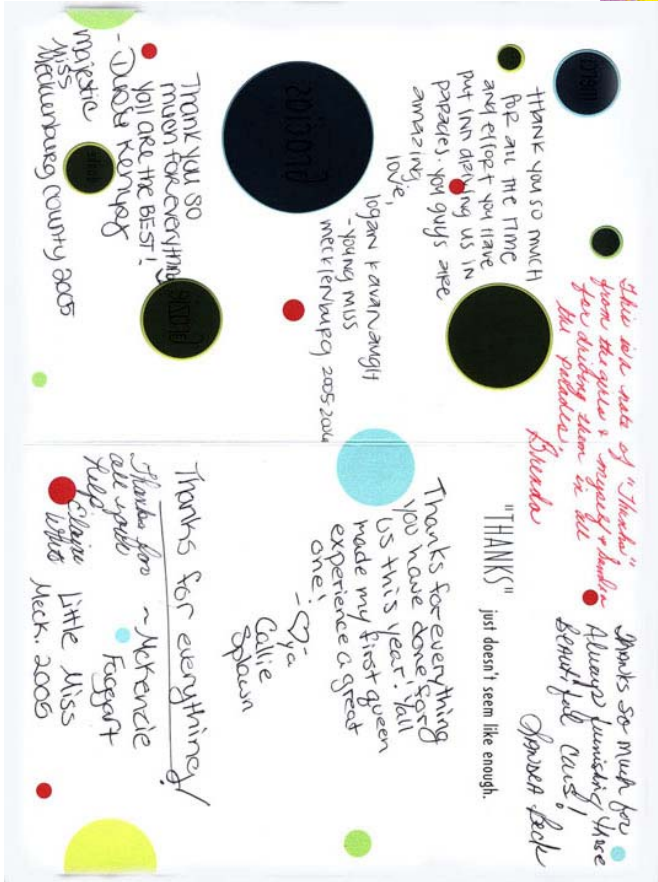 This is a note of "Thanks"
from the girls & myself &
for driving them in all
the parades,
Brenda
thank you so much
for all the time
and effort you have
put inn driving us in
parades. you guys are
amazing.
love,
logan kavanaugh
-young miss
mecklenburg 2005-2006
Thank you so
much for everything
you are the BEST!
majestic
Miss
Mecklenburg county 2005
Thanks so much for
Always furnishing these
Beautiful Cars!
"THANKS" just doesn't seem like enough.
Thanks for everything
you have done for
us this year! Yall
made my first queen
experience a great
one!
-♡ya
Callie
Splawn
Thanks for everything!
~McKenzie
Faggart
Little Miss
Meck. 2005
Thanks for
all your
help
Elaine